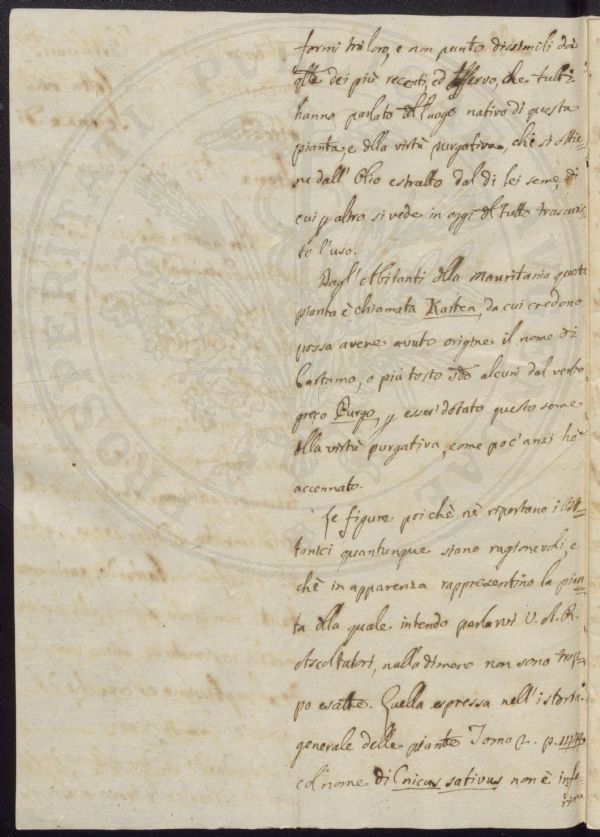 formi trà loro, e non punto dissimili da
qlle dei più recenti, ed osservo, che tutti
hanno parlato del luogo nativo di questa
pianta, e dlla virtù purgativa, che si ottie-
ne dall' Olio estratto dal di lei seme, di
cui p altro si vede in oggi dl tutto trascura-
to l'uso.
Dagl' Abitanti dlla Mauritania questa
pianta è chiamata Karten, da cui credono
possa avere avuto origine il nome di
Cartamo, o più tosto sdo alcuni dal verbo
greco Purgo, p esser dotato questo seme
dlla virtù purgativa, come poc'anzi hò
accennato.
Le figure poi chè nè riportano i Bot-
tanici quantunque siano ragionevoli, e
chè in apparenza rappresentino la pian-
ta dlla quale intendo parlarvi V. A. R.
Ascoltatori, nulladimeno non sono trop-
po esatte. Quella espressa nell'istoria
generale delle piante Tomo 2. p.
col nome di Cnicus sativus non è infe-
riore
PROSPERITATI PUBLICAE